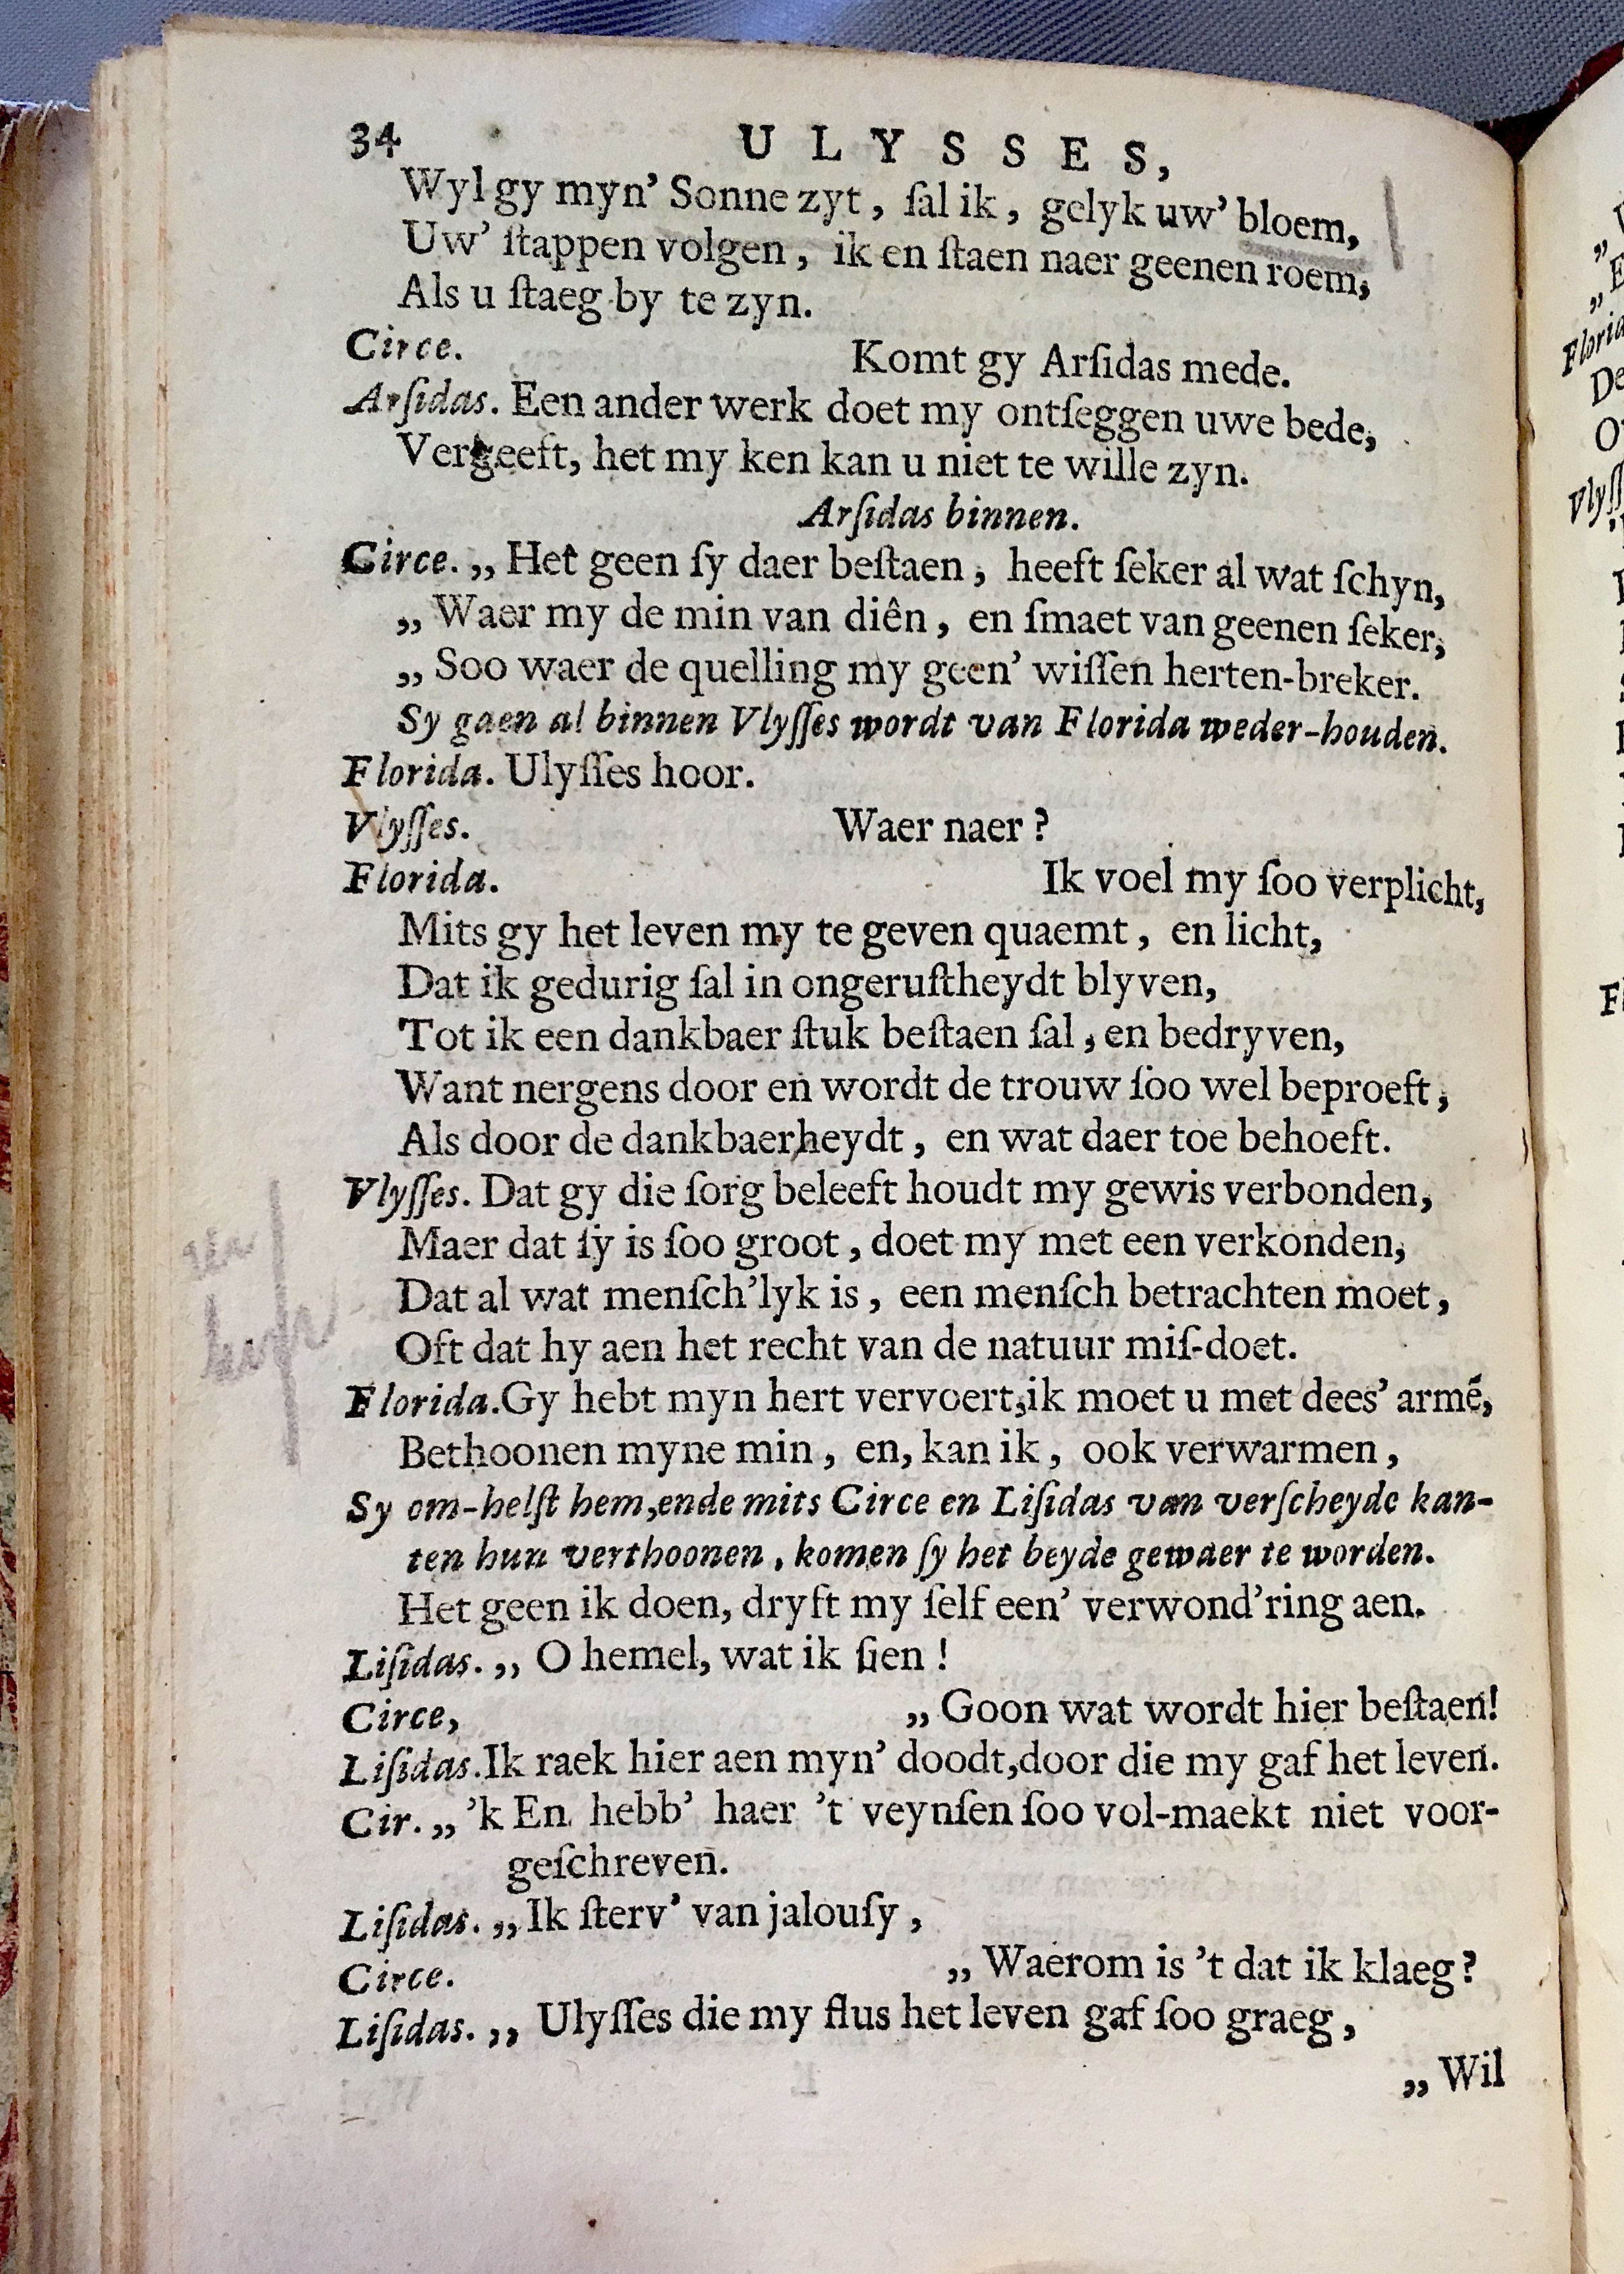 34 ULYSSES,
Wyl gy myn' Sonne zyt, ſal ik, gelyk uw' bloem,
Uw' ſtappen volgen, ik en ſtaen naer geenen roem,
Als u ſtaeg by te zyn.
Circe. Komt gy Arſidas mede.
Arſidas. Een ander werk doet my ontſeggen uwe bede,
Vergeeft, het my ken kan u niet te wille zyn.
Arſidas binnen.
Circe. „ Het geen ſy daer beſtaen, heeft ſeker al wat ſchyn,
„ Waer my de min van diên, en ſmaet van geenen ſeker,
„ Soo waer de quelling my geen' wiſſen herten-breker.
Sy gaen al binnen Vlyſſes wordt van Florida weder-houden.
Florida. Ulyſſes hoor.
Vlyſſes. Waer naer?
Florida. Ik voel my ſoo verplicht,
Mits gy het leven my te geven quaemt, en licht,
Dat ik gedurig ſal in ongeruſtheydt blyven,
Tot ik een dankbaer ſtuk beſtaen ſal, en bedryven,
Want nergens door en wordt de trouw ſoo wel beproeft,
Als door de dankbaerheydt, en wat daer toe behoeft.
Vlyſſes. Dat gy die ſorg beleeft houdt my gewis verbonden,
Maer dat ſy is ſoo groot, doet my met een verkonden,
Dat al wat menſch'lyk is, een menſch betrachten moet,
Oft dat hy aen het recht van de natuur miſ-doet.
Florida. Gy hebt myn hert vervoert, ik moet u met dees' armē,
Bethoonen myne min, en, kan ik, ook verwarmen,
Sy om-helſt hem, ende mits Circe en Liſidas van verſcheyde kan-
ten hun verthoonen, komen ſy het beyde gewaer te worden.
Het geen ik doen, dryft my ſelf een' verwond'ring aen.
Liſidas. „ O hemel, wat ik ſien!
Circe, „ Goon wat wordt hier beſtaen!
Liſidas. Ik raek hier aen myn' doodt, door die my gaf het leven.
Cir. „ 'k En hebb' haer 't veynſen ſoo vol-maekt niet voor-
geſchreven.
Liſidas. „ Ik ſterv' van jalouſy,
Circe. „ Waerom is 't dat ik klaeg?
Liſidas. „ Ulyſſes die my flus het leven gaf ſoo graeg,
„ Wil